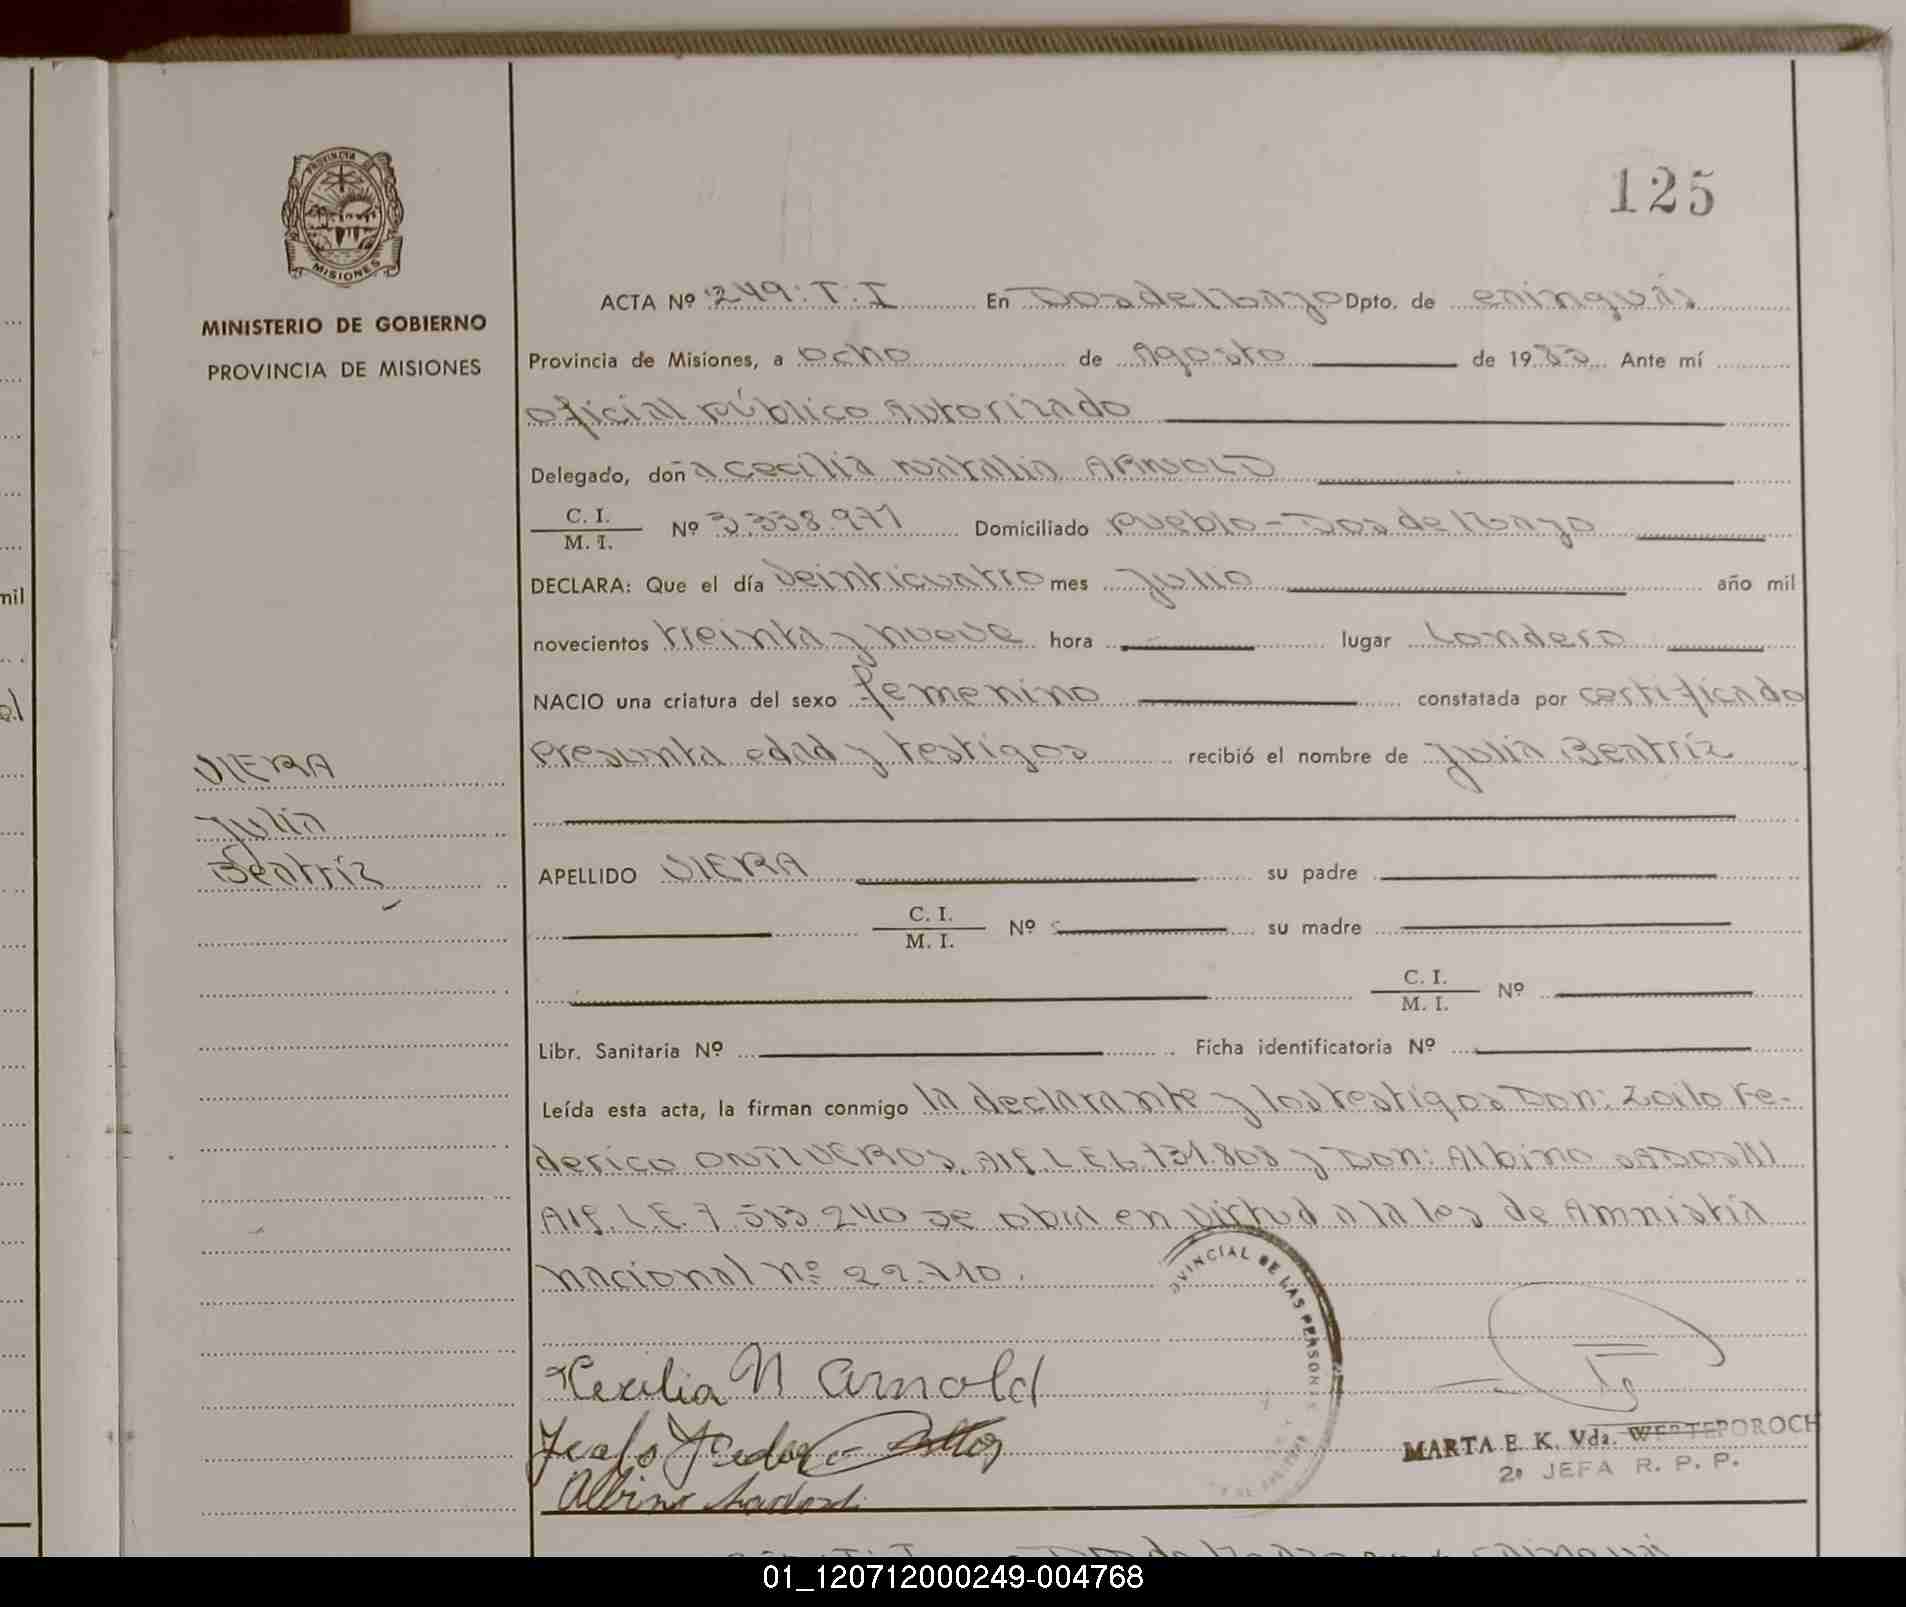 125
PROVINCIA DE MISIONES
MINISTERIO DE GOBIERNO
PROVINCIA DE MISIONES
ACTA Nº 249. T. I En Dos de Mayo Dpto. de Cainguás
Provincia de Misiones, a ocho de Agosto de 1983 Ante mí
oficial público autorizado
Delegado, doña Cecilia Natalia ARNOLD
C. I.
M. I. Nº 3.338.971 Domiciliado pueblo - Dos de Mayo
DECLARA: Que el día veinticuatro mes Julio año mil
novecientos treinta y nueve hora lugar Londero
NACIO una criatura del sexo femenino constatada por certificado
presunta edad y testigos recibió el nombre de Julia Beatríz
VIERA
Julia
Beatríz
APELLIDO VIERA su padre
C. I.
M. I. Nº su madre
C. I.
M. I. Nº
Libr. Sanitaria Nº Ficha identificatoria Nº
Leída esta acta, la firman conmigo la declarante y los testigos Don: Zoilo Fe-
derico ONTIVEROS, L.E 6.131.808 y Don: Albino
L.E. 7.583.240 se abra en virtud a la ley de Amnistía
nacional nº 22.710.
OVINCIAL DE LAS PERSONAS
Cecilia N Arnold
Albino
MARTA E. K. Vda. WERTEPOROCH
2º JEFA R. P. P.
mil
01_120712000249-004768